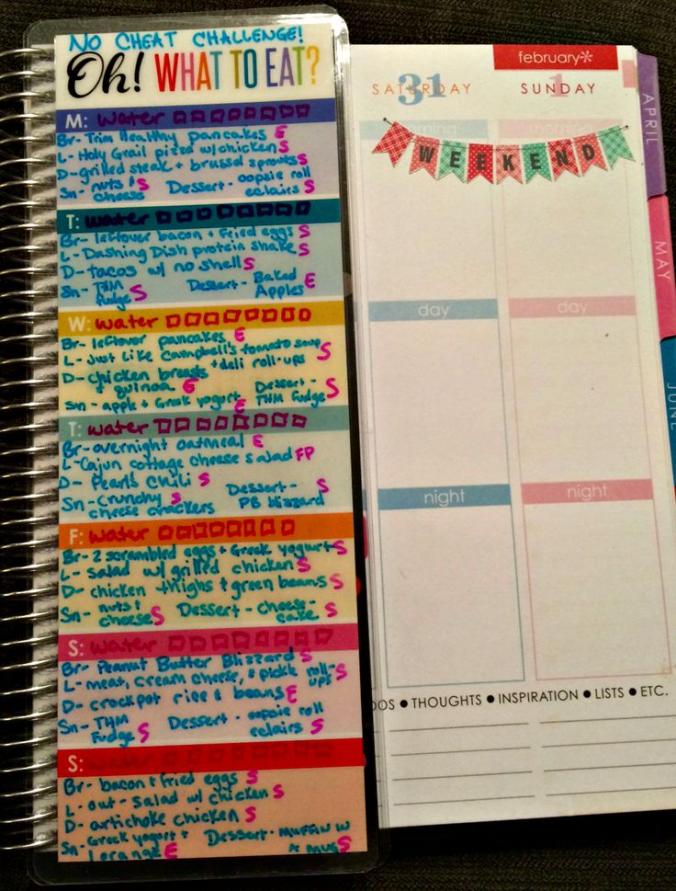 NO CHEAT CHALLENGE!
Oh! WHAT TO EAT?
M: water
Br- Trim Healthy pancakes E
L- Holy Grail pizza w/ chicken S
D- grilled steak + brussel sprouts S
Sn- nuts + cheese S Dessert- oopsie roll eclairs S
T: water
Br- leftover bacon + fried eggs S
L- Dashing Dish protein shake S
D- tacos w/ no shell S
Sn- THM Fudge S Dessert- Baked Apples E
W: water
Br- leftover pancakes E
L- Just Like Campbell's tomato soup + deli roll-ups S
D- chicken breasts + quinoa E
Sn- apple + Greek yogurt E Dessert- THM Fudge S
T: water
Br- overnight oatmeal E
L- Cajun cottage cheese salad FP
D- Pearl's Chili S
Sn- Crunchy cheese crackers S Dessert- PB blizzard S
F: water
Br- 2 scrambled eggs + Greek yogurt S
L- salad w/ grilled chicken S
D- chicken thighs + green beans S
Sn- nuts + cheese S Dessert- cheesecake S
S: water
Br- Peanut Butter Blizzard S
L- meat, cream cheese, + pickle roll-ups S
D- crockpot rice + beans E
Sn- THM Fudge S Dessert- oopsie roll eclairs S
S:
Br- bacon + fried eggs S
L- out- salad w/ chicken S
D- artichoke chicken S
Sn- Greek yogurt + orange E Dessert- Muffin in a mug S
february*
SATURDAY 31
SUNDAY 1
WEEKEND
day day
night night
DOS • THOUGHTS • INSPIRATION • LISTS • ETC.
APRIL
MAY
JUNE